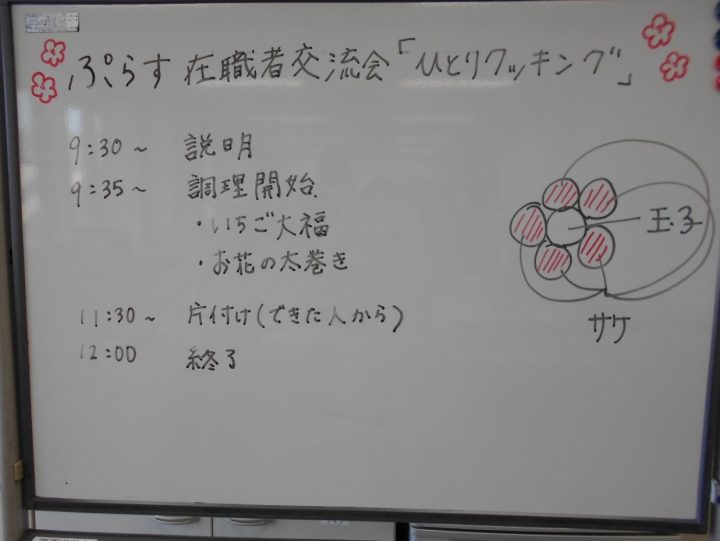 ぷらす 在職者交流会「ひとりクッキング」
9:30～ 説明
9:35～ 調理開始
・いちご大福
・お花の太巻き
11:30～ 片付け(できた人から)
12:00 終了
玉子
サケ